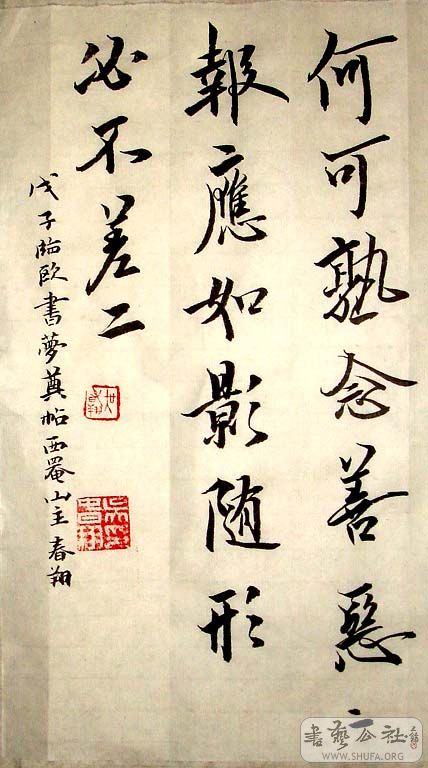 何可熟念善惡
報應如影随形
必不差二
戊子临欧書夢奠帖西罨山主春翔
書藝公社
WWW.SHUFA.ORG